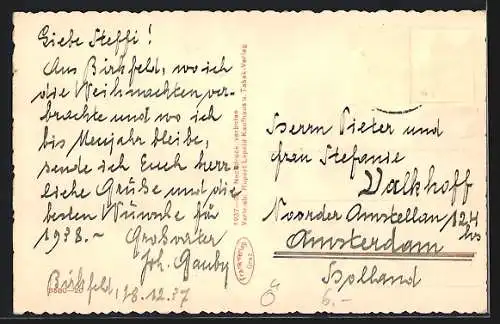 Liebe Steffi!
Aus Birkfeld, wo ich
die Weihnachten ver-
brachte und wo ich
bis Neujahr bleibe,
sende ich Euch herz-
liche Grüße und die
besten Wünsche für
1938.-
Großvater
Joh. Gauby
Birkfeld, 28.12.37
1937 Nachdruck verboten
Vertrieb: Rupert Lepold Kaufhaus u. Tabak-Verlag
Frankverlag
Graz
Herrn Pieter und
Frau Stefanie
Valkhoff
Noorder Amstellan 124
hs
Amsterdam
Holland
6.-